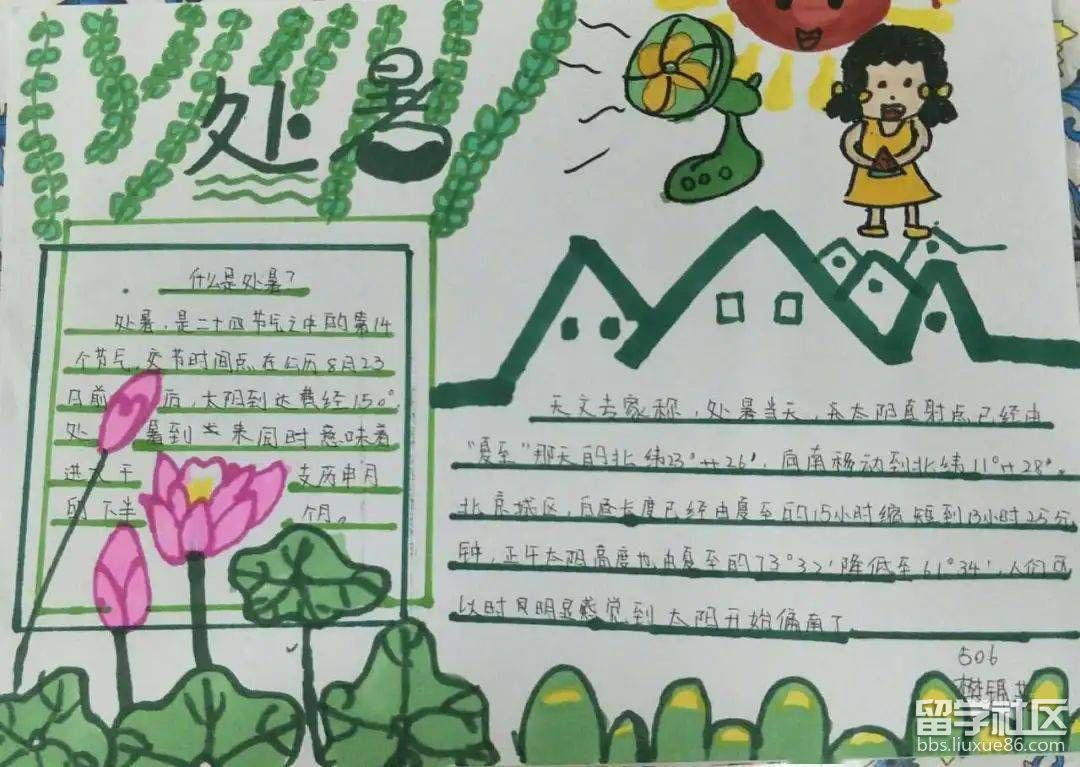 处暑
什么是处暑?
处暑,是二十四节气之中的第14
个节气,交节时间点在公历8月23
日前后,太阳到达黄经150°.
处暑到来同时意味着
进入干支丙申月
的下半个月。
天文专家称,处暑当天,太阳直射点已经由
“夏至”那天的北纬23°26',向南移动到北纬11°28'。
北京城区,白昼长度已经由夏至的15小时缩短到13小时25分
钟,正午太阳高度也由夏至的73°32'降低至61°34',人们可
以时明显感觉到太阳开始偏南了
506
留学社区
bbs.liuxue86.com